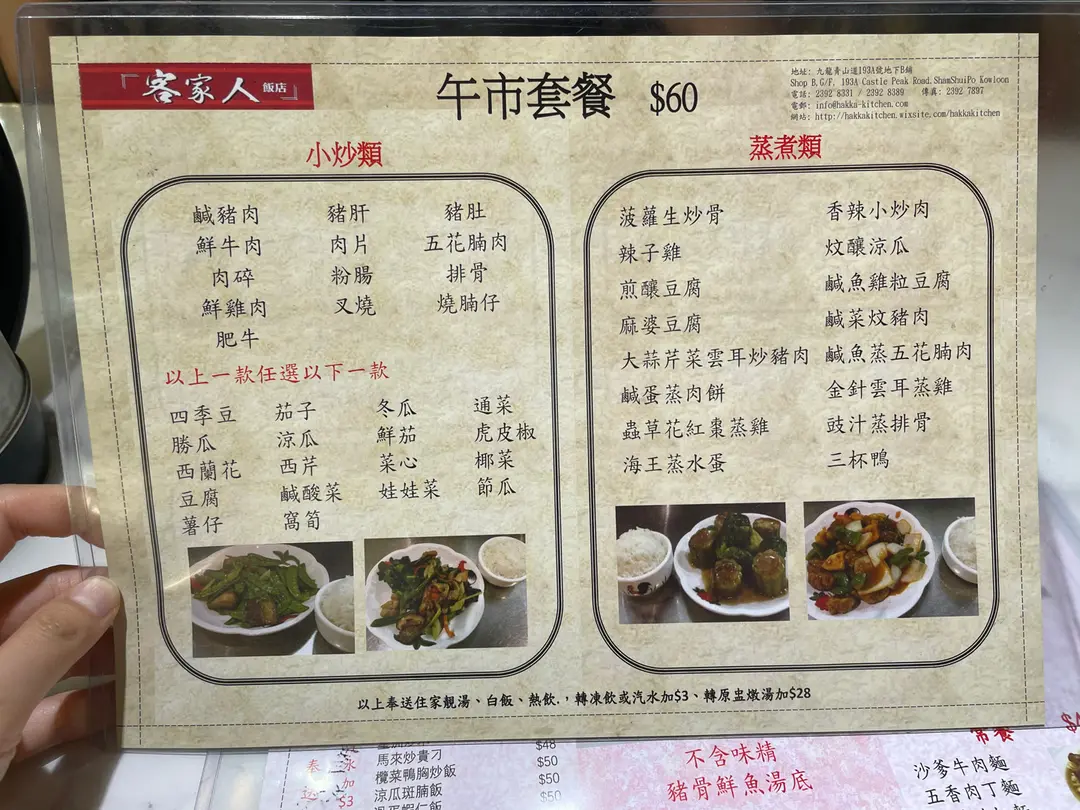 「客家人飯店」
午市套餐 $60
地址: 九龍青山道193A號地下B鋪
Shop B,G/F, 193A Castle Peak Road,ShamShuiPo Kowloon
電話: 2392 8331 / 2392 8389 傳真: 2392 7897
電郵: info@hakka-kitchen.com
網站: http://hakkakitchen.wixsite.com/hakkakitchen
小炒類
鹹豬肉 豬肝 豬肚
鮮牛肉 肉片 五花腩肉
肉碎 粉腸 排骨
鮮雞肉 叉燒 燒腩仔
肥牛
以上一款任選以下一款
四季豆 茄子 冬瓜 通菜
勝瓜 涼瓜 鮮茄 虎皮椒
西蘭花 西芹 菜心 椰菜
豆腐 鹹酸菜 娃娃菜 節瓜
薯仔 窩筍
蒸煮類
菠蘿生炒骨 香辣小炒肉
辣子雞 炆釀涼瓜
煎釀豆腐 鹹魚雞粒豆腐
麻婆豆腐 鹹菜炆豬肉
大蒜芹菜雲耳炒豬肉 鹹魚蒸五花腩肉
鹹蛋蒸肉餅 金針雲耳蒸雞
蟲草花紅棗蒸雞 豉汁蒸排骨
海王蒸水蛋 三杯鴨
以上奉送住家靚湯、白飯、熱飲.，轉凍飲或汽水加$3、轉原盅燉湯加$28
$48
馬來炒貴刁 $50
欖菜鴨胸炒飯 $50
涼瓜斑腩飯 $50
水
加
$3
不含味精
豬骨鮮魚湯底
常餐
沙爹牛肉麵
五香肉丁麵